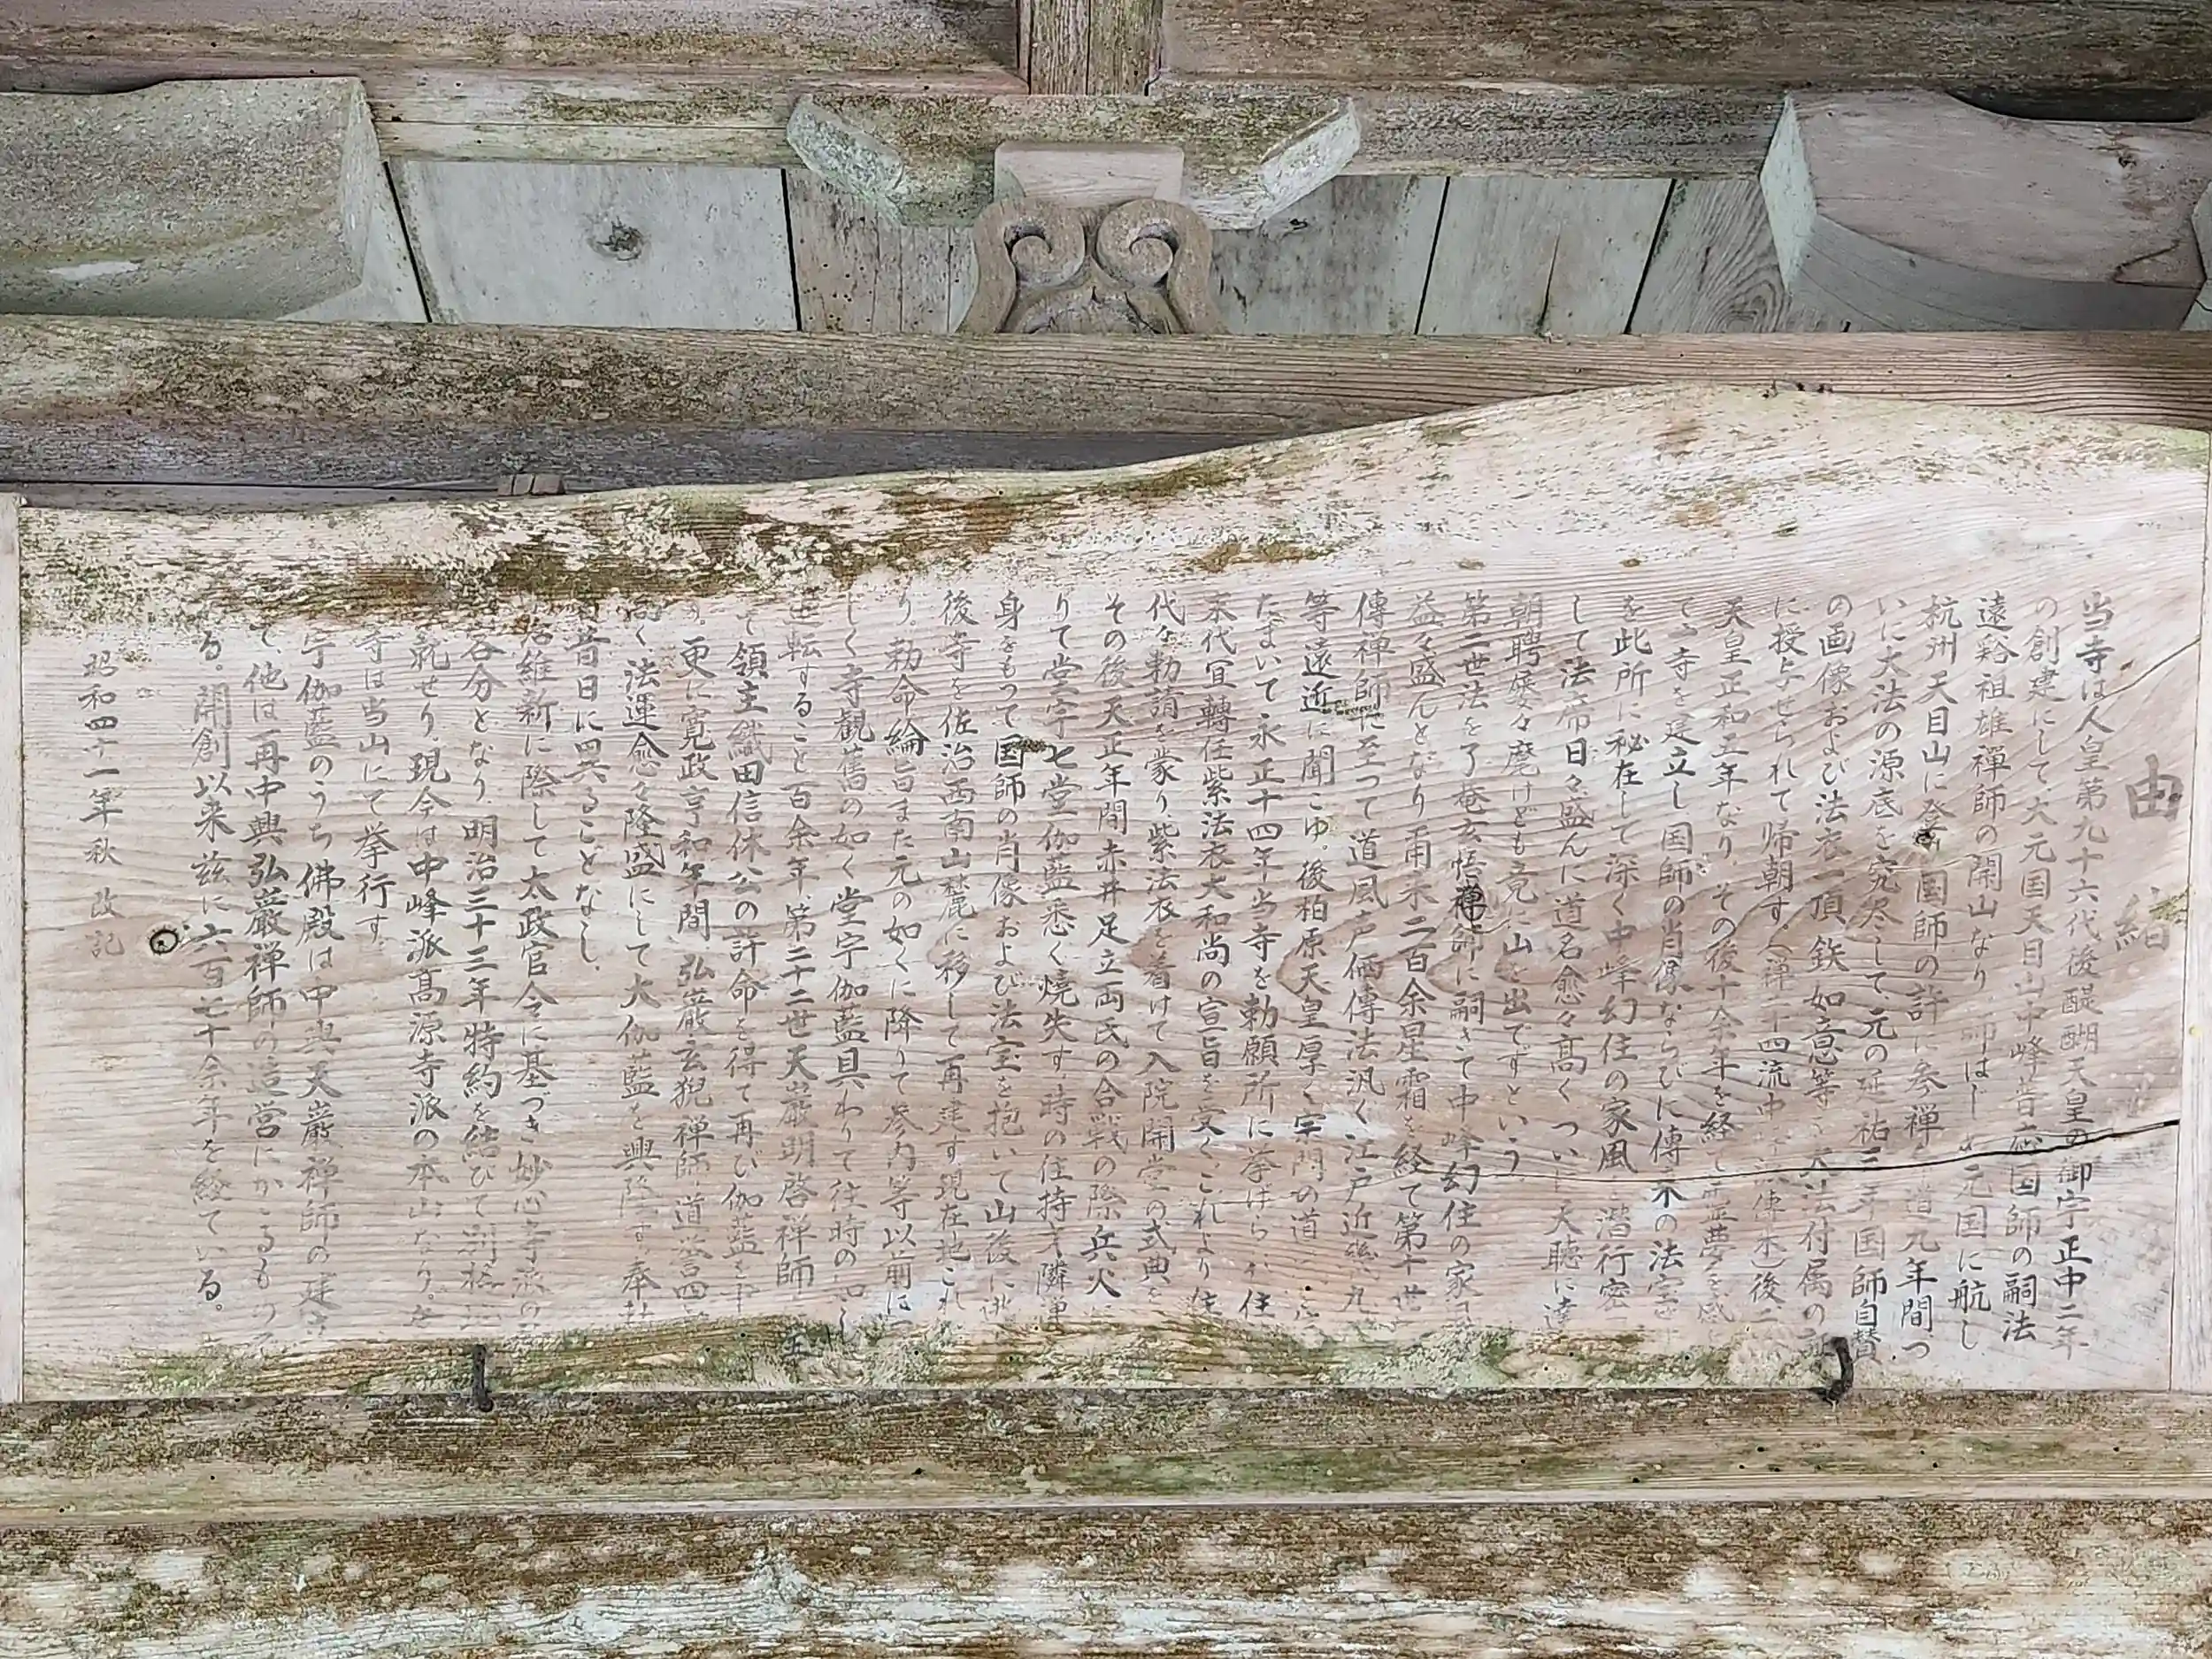 由緒
当寺は人皇第九十六代後醍醐天皇の御宇正中二年
の創建にして、大元国天目山中峰普応国師の嗣法
遠谿祖雄禅師の開山なり 師はじ 元国に航し
杭州天目山に登り国師の許に参禅 道九年間つ
いに大法の源底を究尽して、元の延祐三年国師自賛
の画像および法衣一頂、鉄如意等を大法付属の
に授与せられて帰朝す。(禅二十四流中 傳来)後二
天皇正和五年なり、その後十余年を経て霊夢を感
寺を建立し国師の肖像ならびに傳来の法宝
を此所に秘在して深く中峰幻住の家風 潜行密
して 法席日々盛んに道名愈々高く つい 天聴に達
朝聘屡々麾けども竟に山を出でずという
第二世法を了菴玄悟禅師に嗣ぎて中峰幻住の家
益々盛んとなり 爾来二百余星霜を経て第十世
傳禅師に至って道風声価傳法汎く江戸近畿九
等遠近に聞こゆ。後柏原天皇厚く宗門の道
たまいて 永正十四年当寺を勅願所に挙げら 住
来代宣轉任紫法衣大和尚の宣旨を受く。これより住
代々勅請を蒙り、紫法衣を着けて入院開堂の式典を
その後 天正年間赤井足立両氏の合戦の際 兵火
りて堂宇七堂伽藍悉く焼失す、時の住持 隣禅
身をもって国師の肖像 および法宝を抱いて山後に
後寺を佐治西南山麓に移して再建す 現在地これ
り、勅命綸旨また元の如くに降りて参内等以前に
しく寺観舊の如く 堂宇伽藍具わりて往時の
逆転すること百余年、第二十二世天巌明啓禅師
て領主織田信休公の許命を得て再び伽藍を
更に寛政享和年間 弘巌玄猊禅師 道誉四
高く、法運愈々隆盛にして大伽藍を興隆す。
昔日に異ることなし、
治維新に際して太政官令に基づき妙心寺派の
各分となり、明治三十三年特約を結びて別格
就せり、現今は中峰派高源寺派の本山なり、
寺は当山にて挙行す
宇伽藍のうち 佛殿は中興天巌禅師の建
て、他は再中興弘巌禅師の造営にかゝるもの
る。開創以来茲に六百七十余年を経ている。
昭和四十一年秋 改記